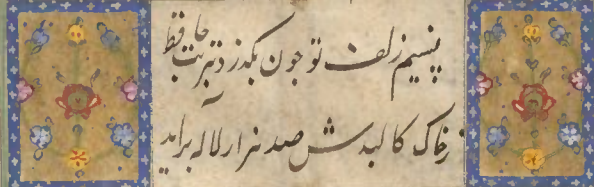 نسیم زلف تو چون بگذرد بتربت حافظ
زخاک کالبدش صد هزار لاله براید